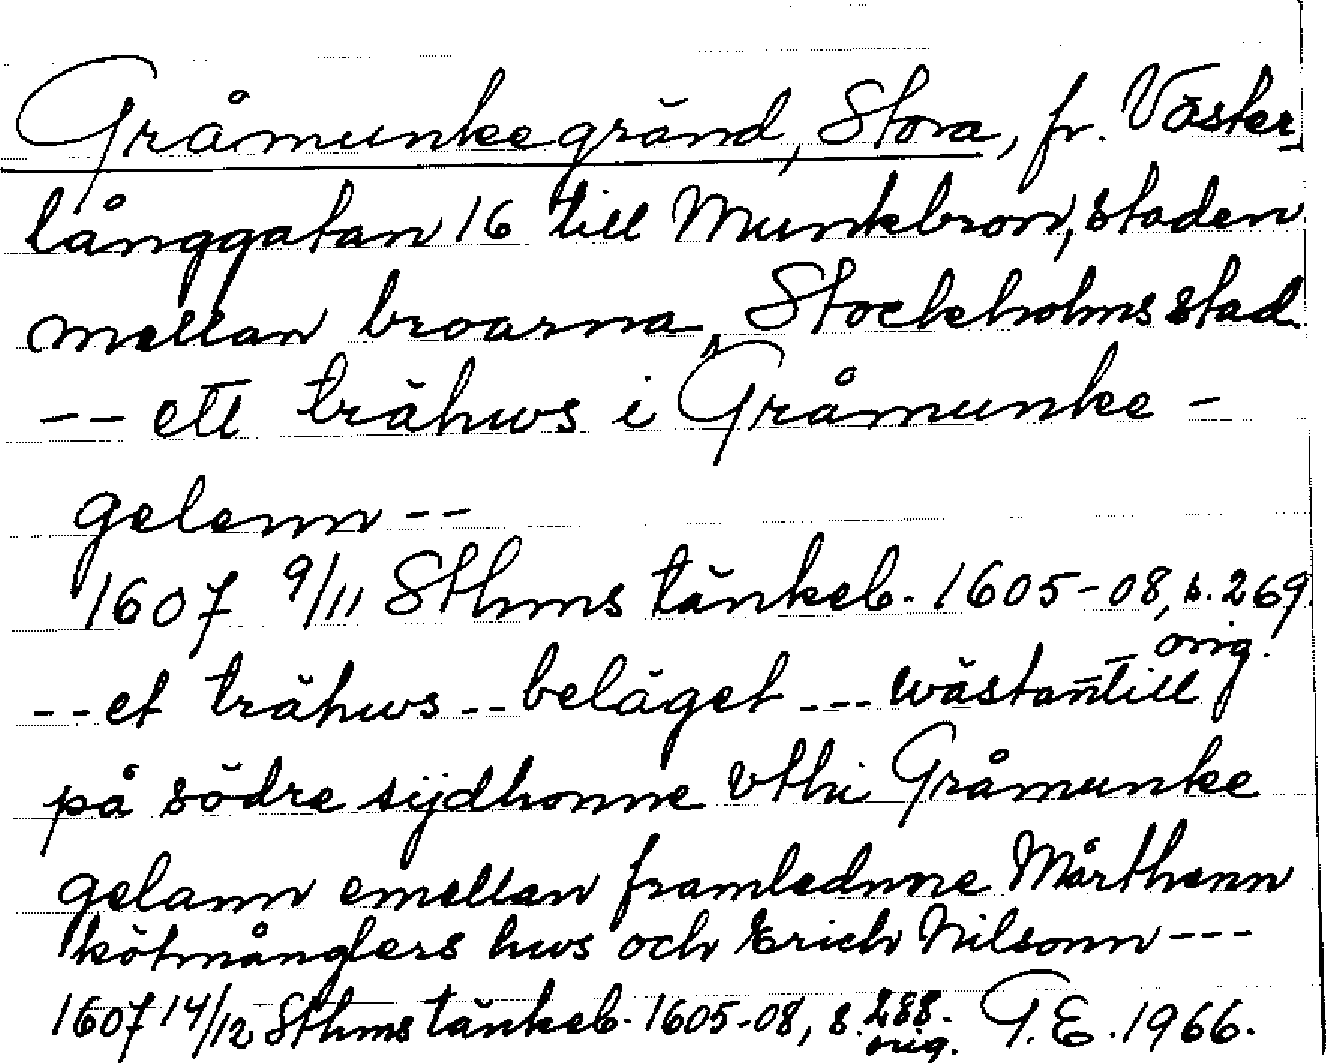 Gråmunkegränd, Stora, fr. Väster-
långgatan 16 till Munkbron, staden
mellan broarna, Stockholms stad.
-- ett trähws i Gråmunke -
gelenn --
1607 9/11 Sthms tänkeb. 1605-08, s. 269.
orig.
-- et trähws -- beläget --- wästantill
på södre sijdhonne vthi Gråmunke
gelann emellan framlednne Mårthenn
kötmånglers hws och Erich Nilsonn ---
1607 14/12 Sthms tänkeb. 1605-08, s. 288.
orig.
G.E. 1966.